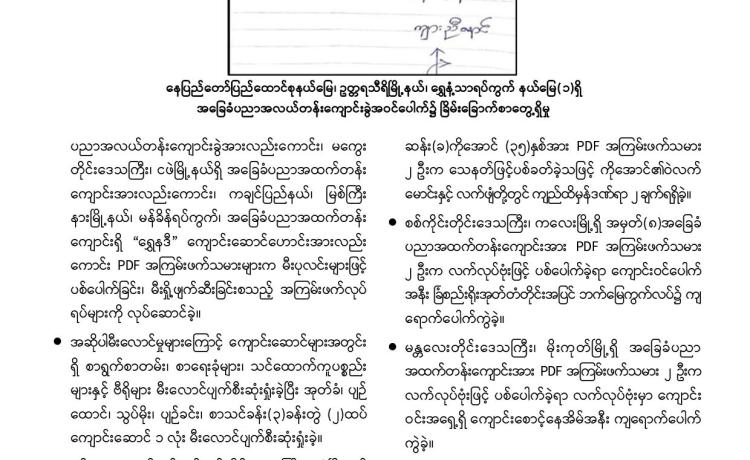 ကျားညိုနောင်
နေပြည်တော်ပြည်ထောင်စုနယ်မြေ၊ ဥတ္တရသီရိမြို့နယ်၊ ရွှေနံ့သာရပ်ကွက် နယ်မြေ(၁)ရှိ
အခြေခံပညာအလယ်တန်းကျောင်းခွဲအဝင်ပေါက်၌ ခြိမ်းခြောက်စာတွေ့ရှိမှု
ပညာအလယ်တန်းကျောင်းခွဲအားလည်းကောင်း၊ မကွေး
တိုင်းဒေသကြီး၊ ငဖဲမြို့နယ်ရှိ အခြေခံပညာအထက်တန်း
ကျောင်းအားလည်းကောင်း၊ ကချင်ပြည်နယ်၊ မြစ်ကြီး
နားမြို့နယ်၊ မန်ခိန်ရပ်ကွက်၊ အခြေခံပညာအထက်တန်း
ကျောင်းရှိ “ရွှေနဒီ” ကျောင်းဆောင်ဟောင်းအားလည်း
ကောင်း PDF အကြမ်းဖက်သမားများက မီးပုလင်းများဖြင့်
ပစ်ပေါက်ခြင်း၊ မီးရှို့ဖျက်ဆီးခြင်းစသည့် အကြမ်းဖက်လုပ်
ရပ်များကို လုပ်ဆောင်ခဲ့။
• အဆိုပါမီးလောင်မှုများကြောင့် ကျောင်းဆောင်များအတွင်း
ရှိ စာရွက်စာတမ်း၊ စာရေးခုံများ၊ သင်ထောက်ကူပစ္စည်း
များနှင့် ဗီရိုများ မီးလောင်ပျက်စီးဆုံးရှုံးခဲ့ပြီး အုတ်ခံ၊ ပျဉ်
ထောင်၊ သွပ်မိုး၊ ပျဉ်ခင်း၊ စာသင်ခန်း(၃)ခန်းတွဲ (၂)ထပ်
ကျောင်းဆောင် ၁ လုံး မီးလောင်ပျက်စီးဆုံးရှုံးခဲ့။
ဆန်း(ခ)ကိုအောင် (၃၅)နှစ်အား PDF အကြမ်းဖက်သမား
၂ ဦးက သေနတ်ဖြင့်ပစ်ခတ်ခဲ့သဖြင့် ကိုအောင်၏ဝဲလက်
မောင်းနှင့် လက်ဖျံတို့တွင် ကျည်ထိမှန်ဒဏ်ရာ ၂ ချက်ရရှိခဲ့။
• စစ်ကိုင်းတိုင်းဒေသကြီး၊ ကလေးမြို့ရှိ အမှတ်(၈)အခြေခံ
ပညာအထက်တန်းကျောင်းအား PDF အကြမ်းဖက်သမား
၂ ဦးက လက်လုပ်ဗုံးဖြင့် ပစ်ပေါက်ခဲ့ရာ ကျောင်းဝင်ပေါက်
အနီး ခြံစည်းရိုးအုတ်တံတိုင်းအပြင် ဘက်မြေကွက်လပ်၌ ကျ
ရောက်ပေါက်ကွဲခဲ့။
• မန္တလေးတိုင်းဒေသကြီး၊ မိုးကုတ်မြို့ရှိ အခြေခံပညာ
အထက်တန်းကျောင်းအား PDF အကြမ်းဖက်သမား ၂ ဦးက
လက်လုပ်ဗုံးဖြင့် ပစ်ပေါက်ခဲ့ရာ လက်လုပ်ဗုံးမှာ ကျောင်း
ဝင်းအရှေ့ရှိ ကျောင်းစောင့်နေအိမ်အနီး ကျရောက်ပေါက်
ကွဲခဲ့။